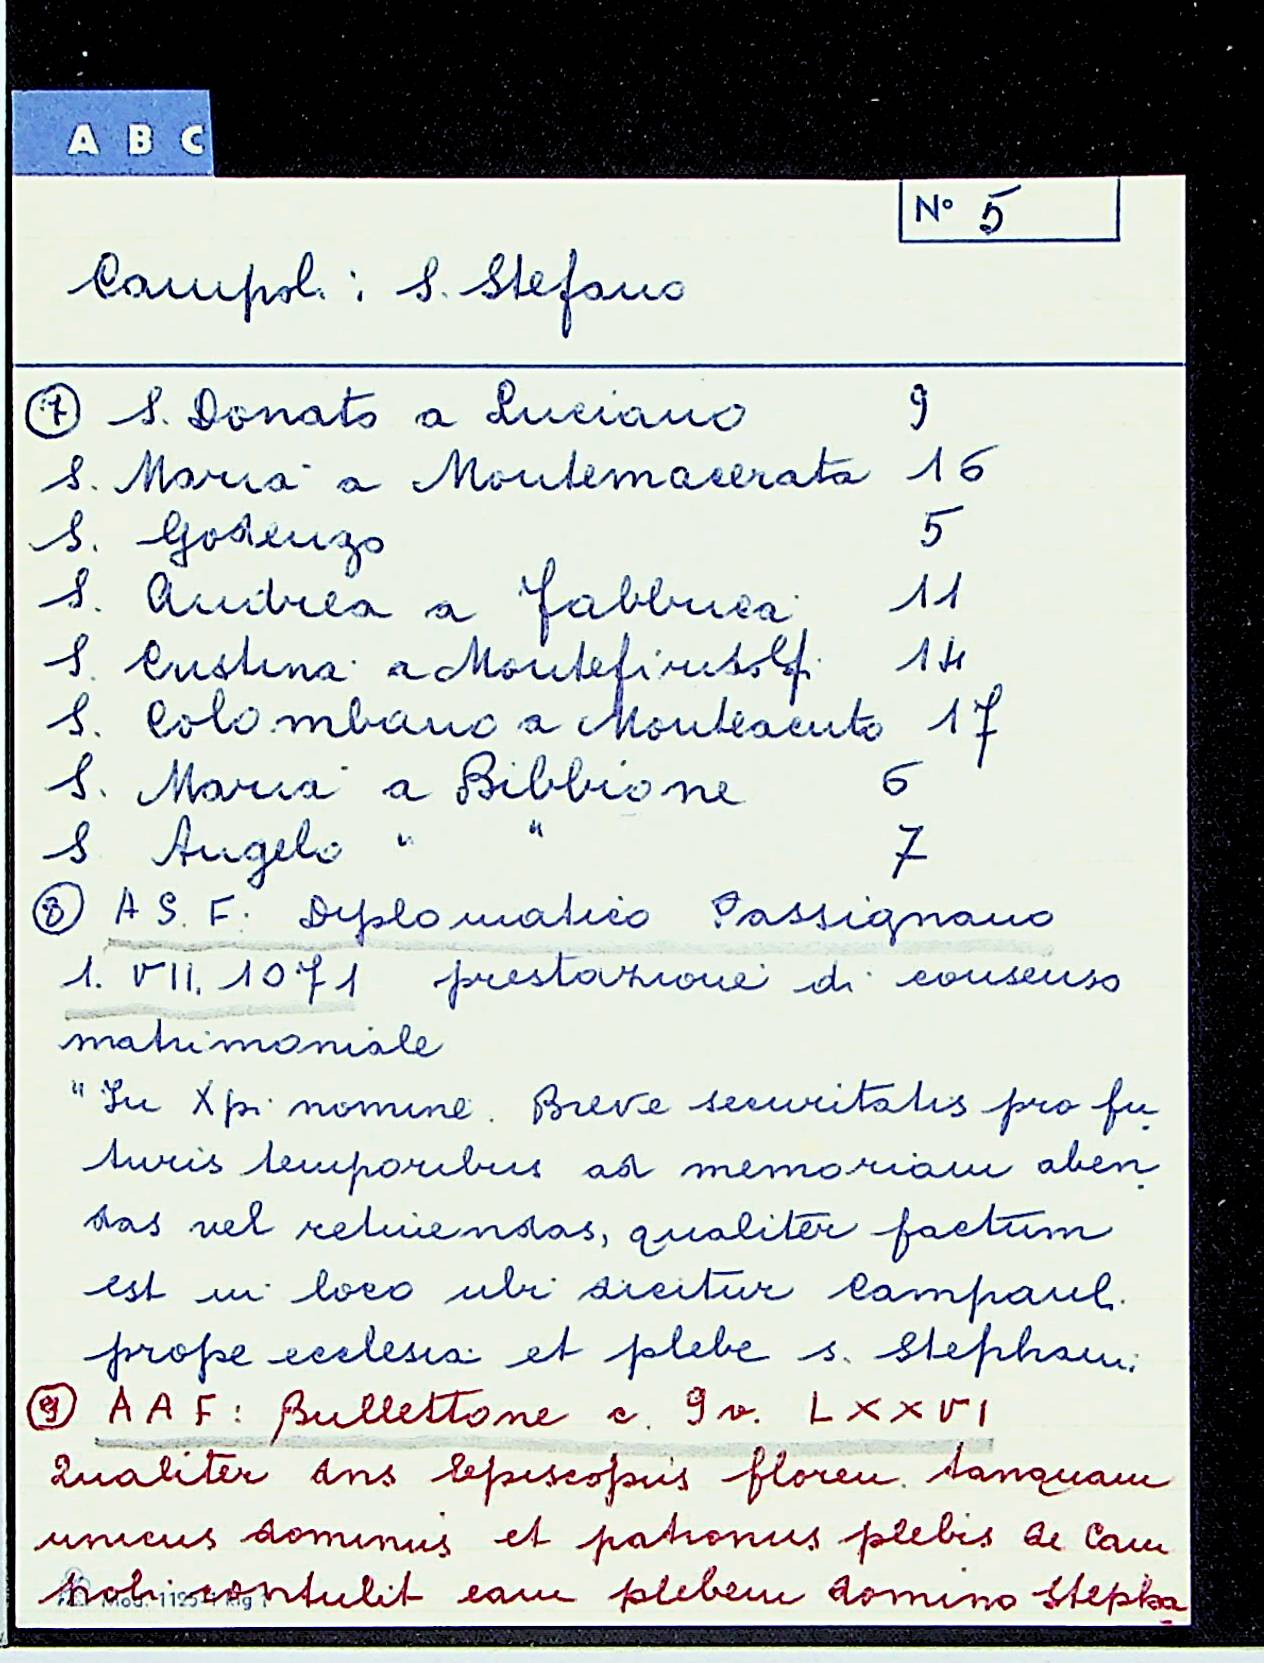 A B C
N° 5
Campoli: S. Stefano
⑦ S. Donato a Luciano 9
S. Maria a Montemacerata 16
S. Godenzo 5
S. Andrea a Fabbrica 11
S. Cristina a Montefiridolfi 14
S. Colombano a Monteacuto 17
S. Maria a Bibbione 6
S Angelo " " 7
⑧ A S. F: Diplomatico Passignano
1. VII. 1071 prestazione di consenso
matrimoniale
"In Xpi nomine. Breve securitatis pro fu
turis temporibus ad memoriam aben
das vel retinendas, qualiter factum
est in loco ubi dicitur Campauli
prope ecclesia et plebe s. Stephani
⑨ A A F: Bullettone c. 9v. LXXVI
Qualiter dns Episcopus floren. tanquam
unicus dominus et patronus plebis de Cam
poli contulit eam plebem domino Stepha
Mod. 1125